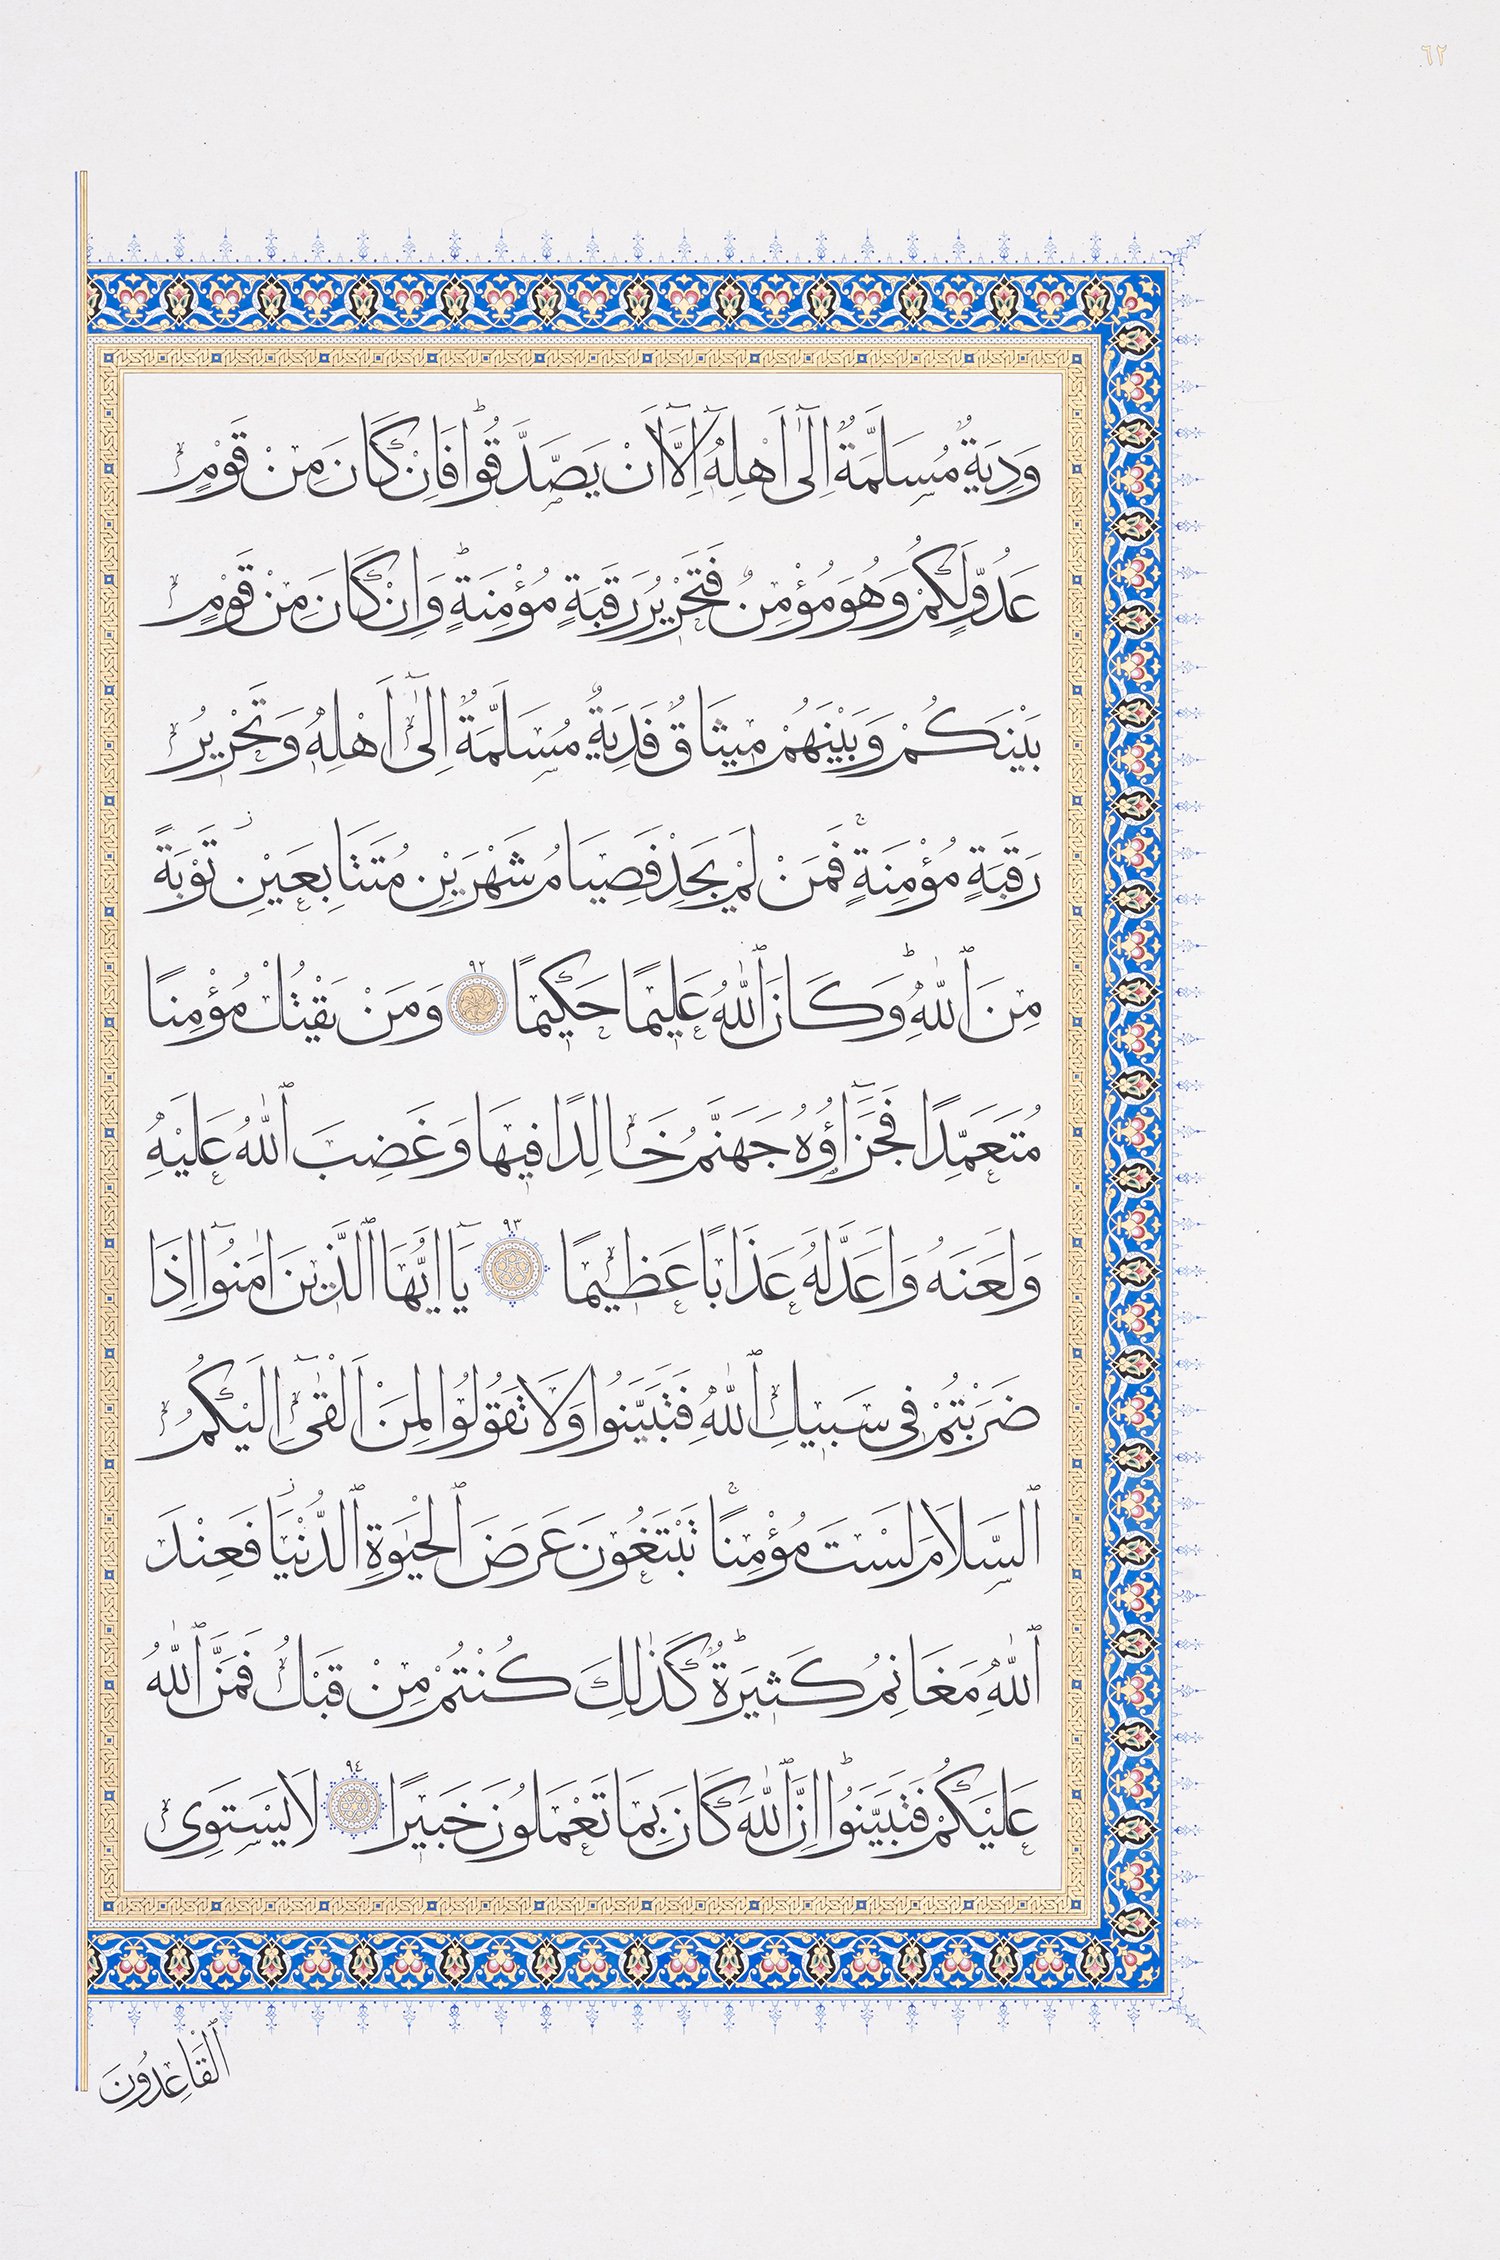 ٦٢
وَدِيَةٌ مُسَلَّمَةٌ اِلٰٓى اَهْلِهٖٓ اِلَّٓا اَنْ يَصَّدَّقُواۜ فَاِنْ كَانَ مِنْ قَوْمٍ
عَدُوٍّ لَكُمْ وَهُوَ مُؤْمِنٌ فَتَحْرٖيرُ رَقَبَةٍ مُؤْمِنَةٍۜ وَاِنْ كَانَ مِنْ قَوْمٍ
بَيْنَكُمْ وَبَيْنَهُمْ مٖيثَاقٌ فَدِيَةٌ مُسَلَّمَةٌ اِلٰٓى اَهْلِهٖ وَتَحْرٖيرُ
رَقَبَةٍ مُؤْمِنَةٍۚ فَمَنْ لَمْ يَجِدْ فَصِيَامُ شَهْرَيْنِ مُتَتَابِعَيْنِؗ تَوْبَةً
مِنَ ٱللّٰهِۜ وَكَانَ ٱللّٰهُ عَلٖيمًا حَكٖيمًا ٩٢ وَمَنْ يَقْتُلْ مُؤْمِنًا
مُتَعَمِّدًا فَجَزَٓاؤُ۬هُ جَهَنَّمُ خَالِدًا فٖيهَا وَغَضِبَ ٱللّٰهُ عَلَيْهِ
وَلَعَنَهُ وَاَعَدَّ لَهُ عَذَابًا عَظٖيمًا ٩٣ يَٓا اَيُّهَا ٱلَّذٖينَ اٰمَنُٓوا اِذَا
ضَرَبْتُمْ فٖي سَبٖيلِ ٱللّٰهِ فَتَبَيَّنُوا وَلَا تَقُولُوا لِمَنْ اَلْقٰٓى اِلَيْكُمُ
ٱلسَّلَامَ لَسْتَ مُؤْمِنًاۚ تَبْتَغُونَ عَرَضَ ٱلْحَيٰوةِ ٱلدُّنْيَاؗ فَعِنْدَ
ٱللّٰهِ مَغَانِمُ كَثٖيرَةٌۜ كَذٰلِكَ كُنْتُمْ مِنْ قَبْلُ فَمَنَّ ٱللّٰهُ
عَلَيْكُمْ فَتَبَيَّنُواۜ اِنَّ ٱللّٰهَ كَانَ بِمَا تَعْمَلُونَ خَبٖيرًا ٩٤ لَا يَسْتَوِى
ٱلْقَاعِدُونَ